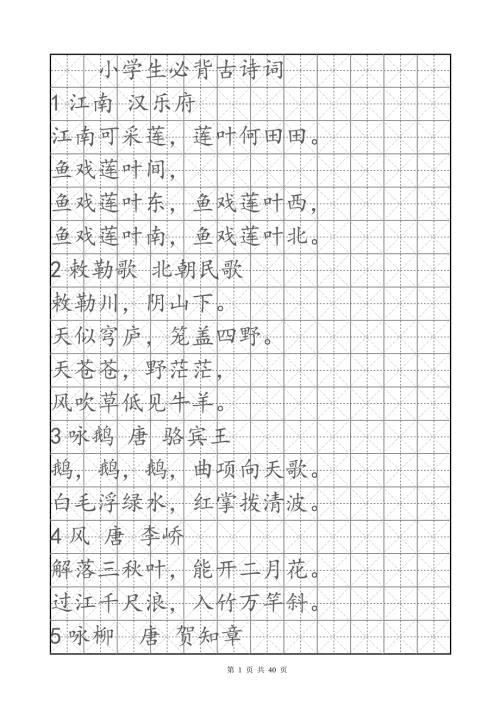 小学生必背古诗词
1江南 汉乐府
江南可采莲，莲叶何田田。
鱼戏莲叶间，
鱼戏莲叶东，鱼戏莲叶西，
鱼戏莲叶南，鱼戏莲叶北。
2敕勒歌 北朝民歌
敕勒川，阴山下。
天似穹庐，笼盖四野。
天苍苍，野茫茫，
风吹草低见牛羊。
3咏鹅 唐 骆宾王
鹅，鹅，鹅，曲项向天歌。
白毛浮绿水，红掌拨清波。
4风 唐 李峤
解落三秋叶，能开二月花。
过江千尺浪，入竹万竿斜。
5咏柳 唐 贺知章
第 1 页 共 40 页